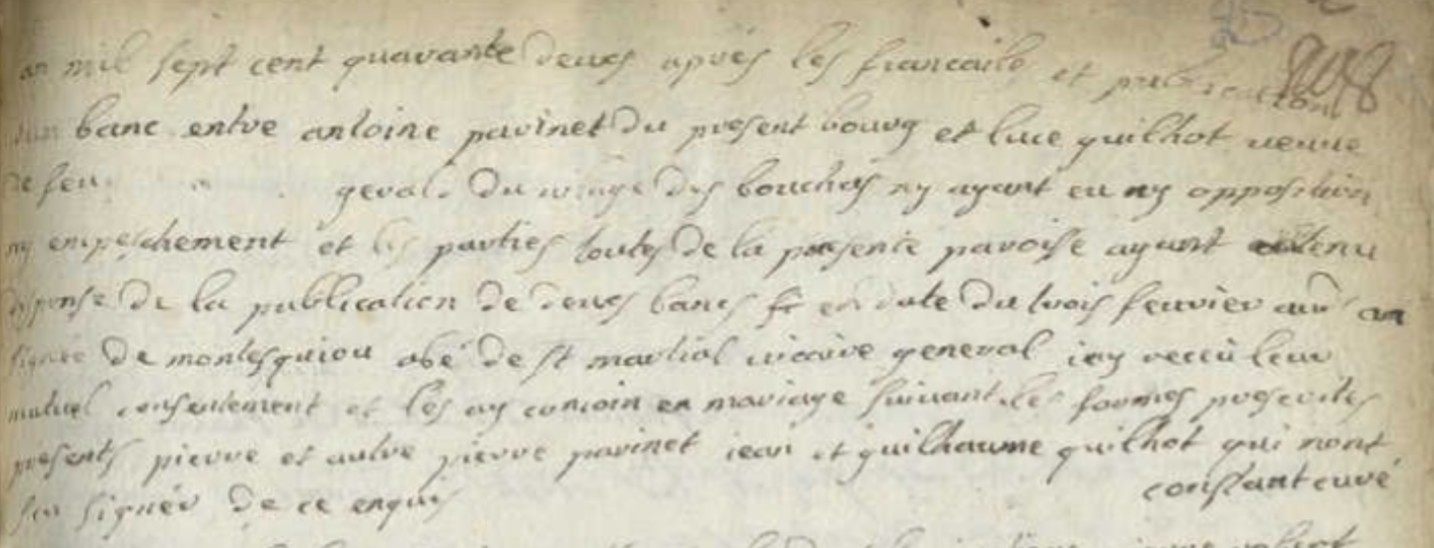 an mil sept cent quarante deues apres les fiancaile et publication
dun banc entre antoine parinet du present bourg et luce guilhot veuve
de feu geral du vilage des bouchas ny ayant eu ny opposition
ny empeschement et les parties toutes de la presente paroisse ayant obtenu
dispense de la publication de deues bancs en date du trois fevrier an
signée de montesquiou abé de st martial vicaire general iay receü leur
mutuel consentement et les ay conioin en mariage suivant les formes prescrites
presents pierre et autre pierre parinet iean et guilhaume guilhot qui nont
sceu signér de ce enquis
constant curé